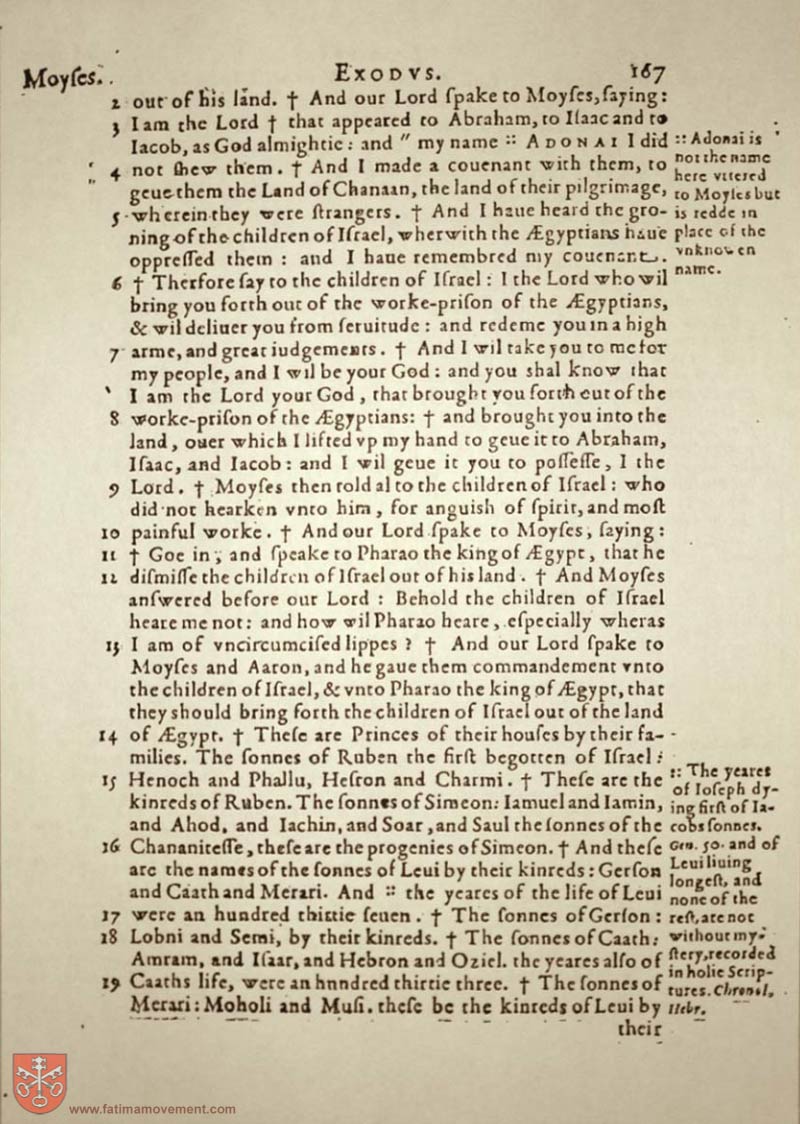 Moyſes.
EXODVS.
167
2 out of his land. † And our Lord ſpake to Moyſes, ſaying:
3 I am the Lord † that appeared to Abraham, to Iſaac and to
Iacob, as God almightie: and " my name :: ADONAI I did
4 not ſhew them. † And I made a couenant with them, to
geue them the Land of Chanaan, the land of their pilgrimage,
5 wherein they were ſtrangers. † And I haue heard the gro-
ning of the children of Iſrael, wherwith the Ægyptians haue
oppreſſed them: and I haue remembred my couenant.
6 † Therfore ſay to the children of Iſrael: I the Lord who wil
bring you forth out of the worke-priſon of the Ægyptians,
& wil deliuer you from ſeruitude: and redeme you in a high
7 arme, and great iudgements. † And I wil take you to me for
my people, and I wil be your God: and you shal know that
I am the Lord your God, that brought you forth out of the
8 worke-priſon of the Ægyptians: † and brought you into the
land, ouer which I lifted vp my hand to geue it to Abraham,
Iſaac, and Iacob: and I wil geue it you to poſſeſſe, I the
9 Lord. † Moyſes then told al to the children of Iſrael: who
did not hearken vnto him, for anguish of ſpirit, and moſt
10 painful worke. † And our Lord ſpake to Moyſes, ſaying:
11 † Goe in, and ſpeake to Pharao the king of Ægypt, that he
12 diſmiſſe the children of Iſrael out of his land. † And Moyſes
anſwered before our Lord: Behold the children of Iſrael
heare me not: and how wil Pharao heare, eſpecially wheras
13 I am of vncircumciſed lippes? † And our Lord ſpake to
Moyſes and Aaron, and he gaue them commandement vnto
the children of Iſrael, & vnto Pharao the king of Ægypt, that
they should bring forth the children of Iſrael out of the land
14 of Ægypt. † Theſe are Princes of their houſes by their fa-
milies. The ſonnes of Ruben the firſt begotten of Iſrael:
15 Henoch and Phallu, Heſron and Charmi. † Theſe are the
kinreds of Ruben. The ſonnes of Simeon: Iamuel and Iamin,
and Ahod, and Iachin, and Soar, and Saul the ſonnes of the
16 Chananiteſſe, theſe are the progenies of Simeon. † And theſe
are the names of the ſonnes of Leui by their kinreds: Gerſon
and Caath and Merari. And :: the yeares of the life of Leui
17 were an hundred thirtie ſeuen. † The ſonnes of Gerſon:
18 Lobni and Semi, by their kinreds. † The ſonnes of Caath:
Amram, and Iſaar, and Hebron and Oziel. the yeares alſo of
19 Caaths life, were an hnndred thirtie three. † The ſonnes of
Merari: Moholi and Muſi. theſe be the kinreds of Leui by
their
:: Adonai is
not the name
here vttered
to Moyſes but
is redde in
place of the
vnknowen
name.
:: The yeares
of Ioſeph dy-
ing firſt of Ia-
cobs ſonnes.
Gen. 50. and of
Leui liuing
longeſt, and
none of the
reſt, are not
without my-
ſtery, recorded
in holie Scrip-
tures. Chronol.
Hebr.
www.fatimamovement.com